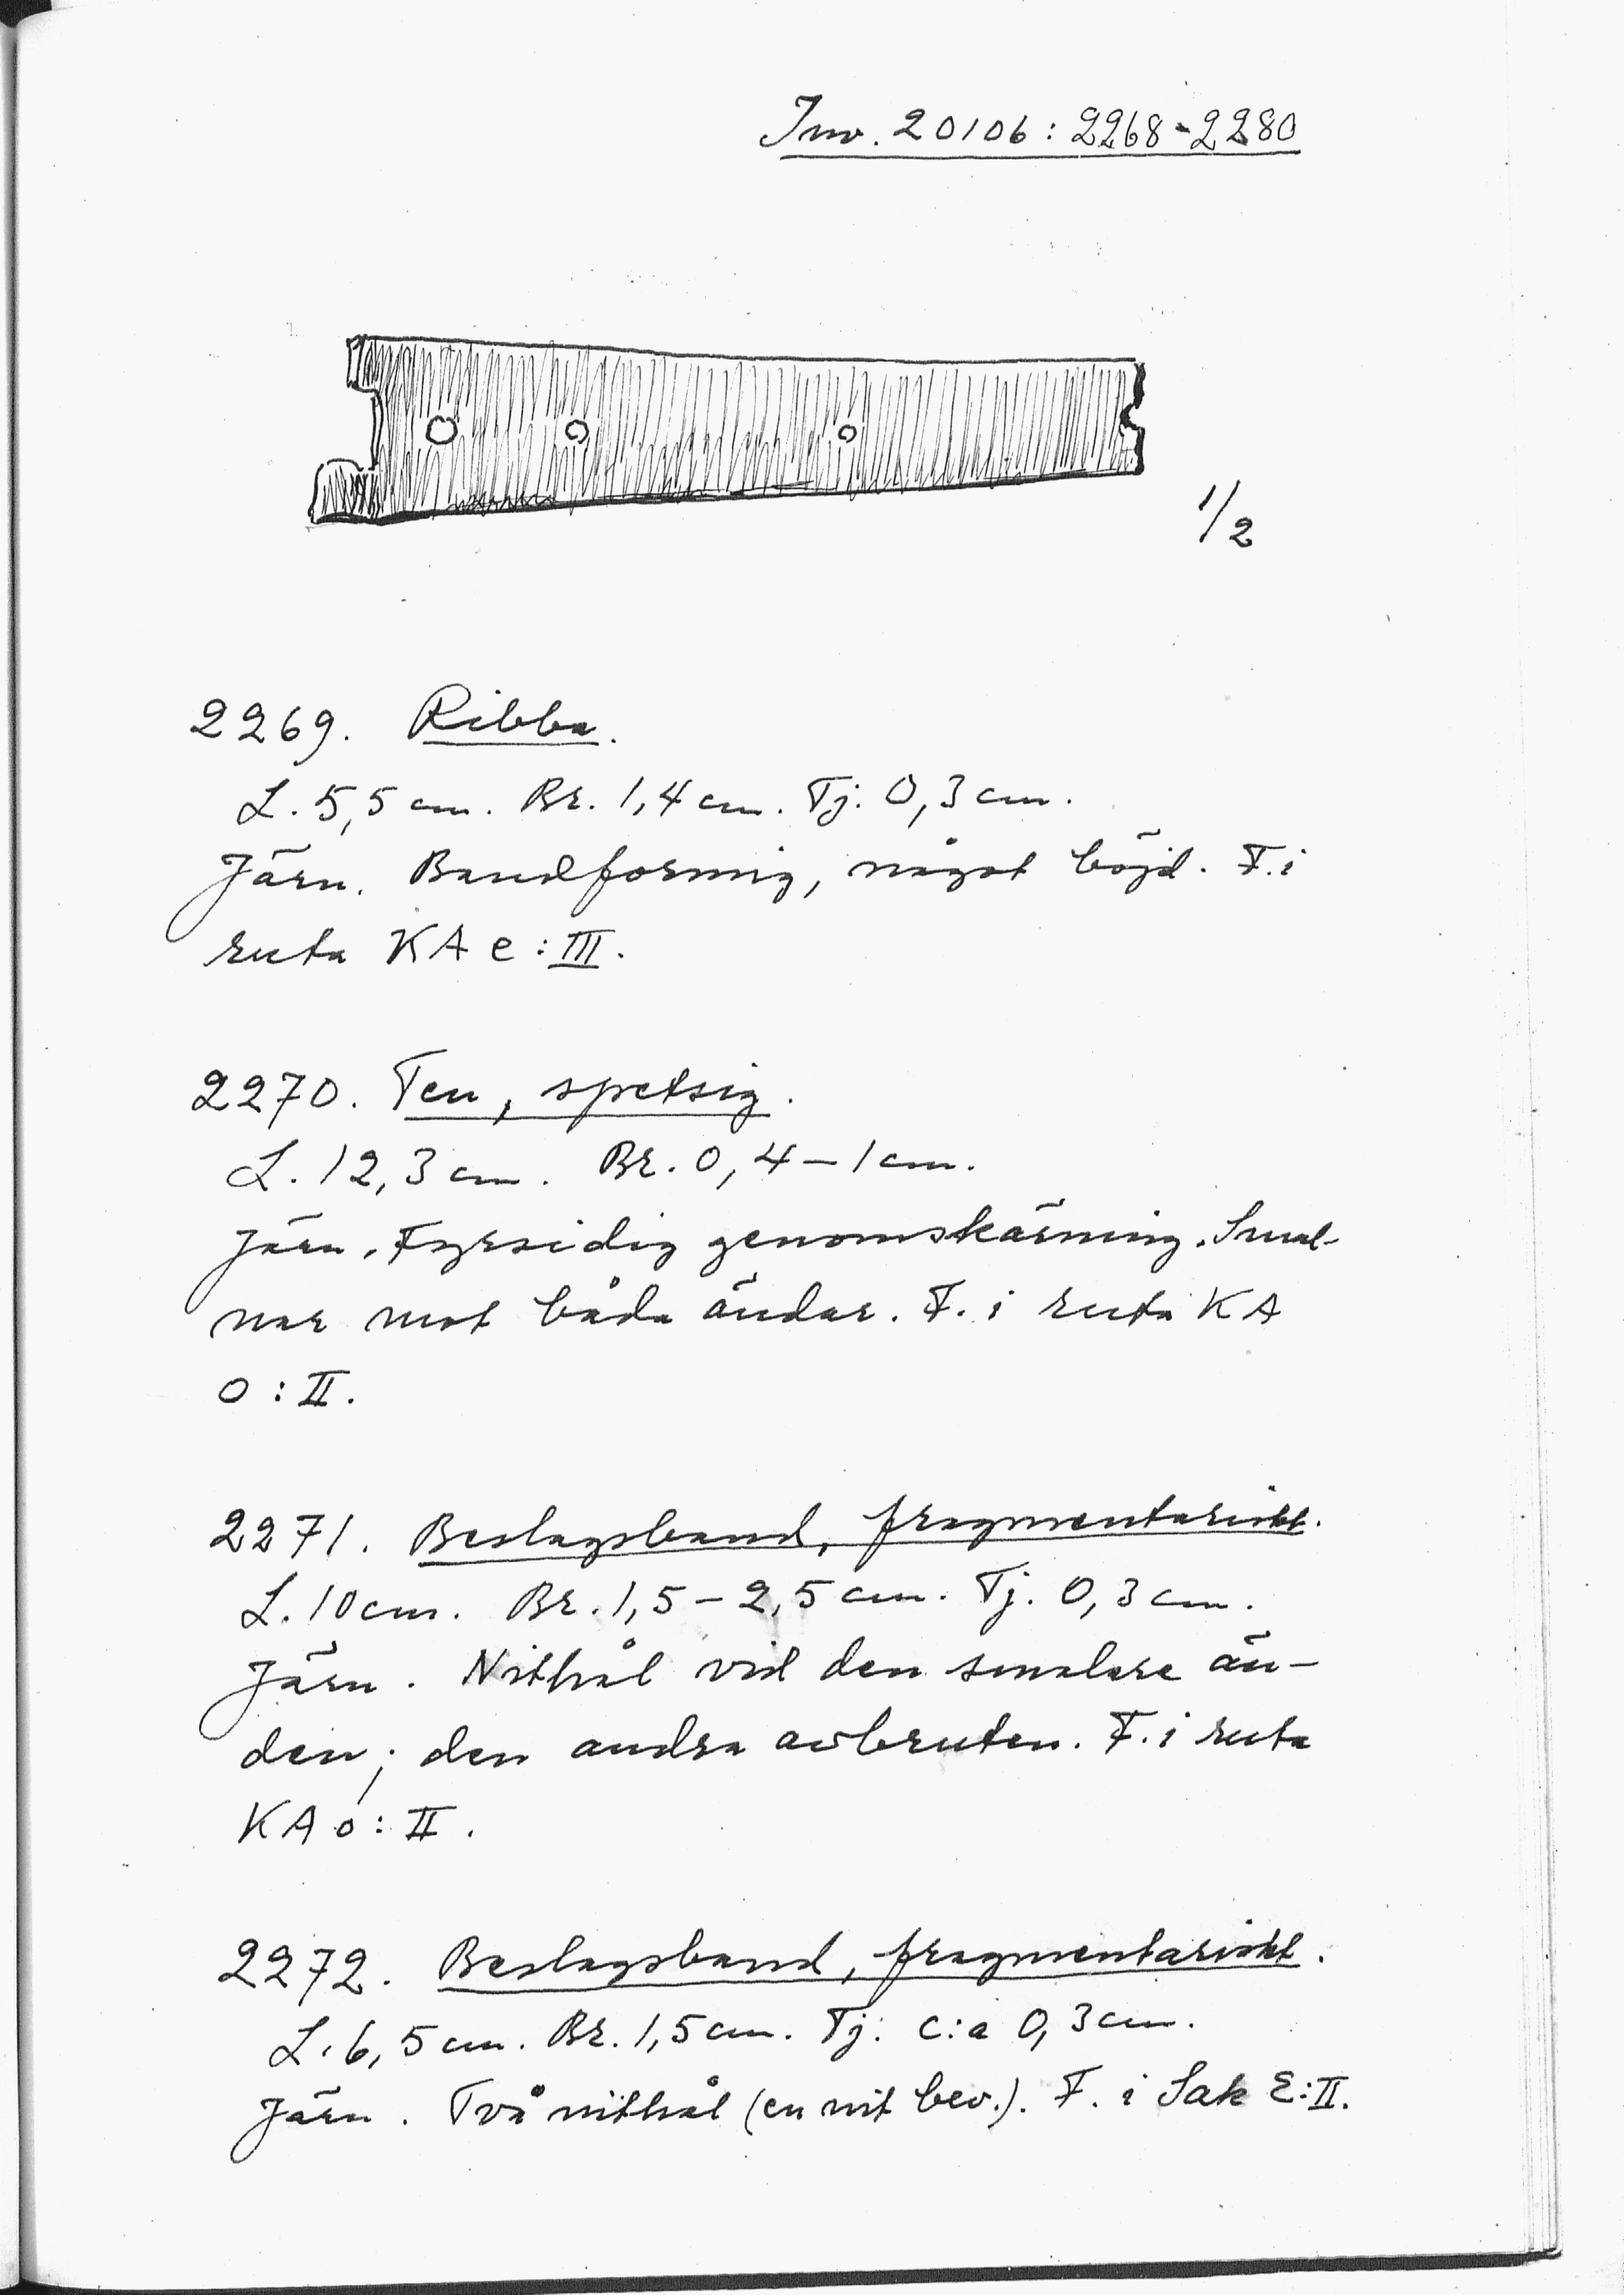 Inv. 20106:2268-2280
1/2
2269. Ribba.
L. 5,5 cm. Br. 1,4 cm. Tj. 0,3 cm.
Järn. Bandformig, något böjd. F. i
ruta KA e:III.
2270. Ten, spetsig.
L. 12,3 cm. Br. 0,4-1 cm.
Järn. Fyrsidig genomskärning. Smal-
nar mot båda ändar. F. i ruta KA
o:II.
2271. Beslagsband, fragmentariskt.
L. 10 cm. Br. 1,5-2,5 cm. Tj. 0,3 cm.
Järn. Nithål vid den smalare än-
den; den andra avbruten. F. i ruta
KA o:II.
2272. Beslagsband, fragmentariskt.
L. 6,5 cm. Br. 1,5 cm. Tj: c:a 0,3 cm.
Järn. Två nithål (en nit bev.). F. i Sak E:II.